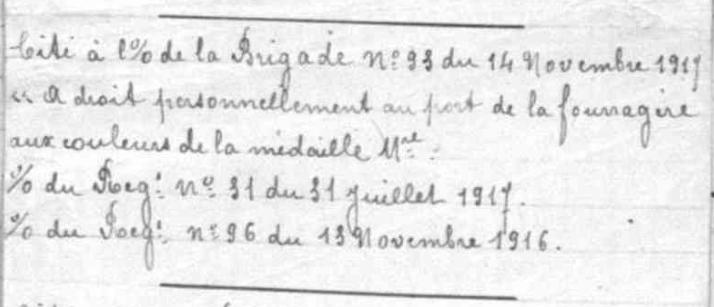 Cité à l'% de la Brigade N° 93 du 14 Novembre 1917
" A droit personnellement au port de la fourragère
aux couleurs de la médaille Mre.
% du Regt. N° 31 du 31 Juillet 1917.
% du Regt. n° 96 du 13 Novembre 1916.